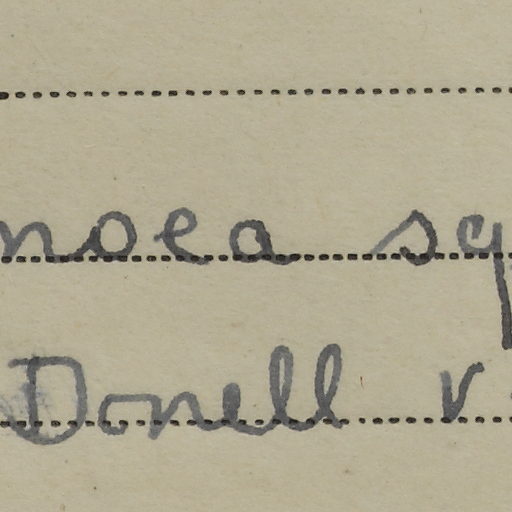 noea sq
Donell v